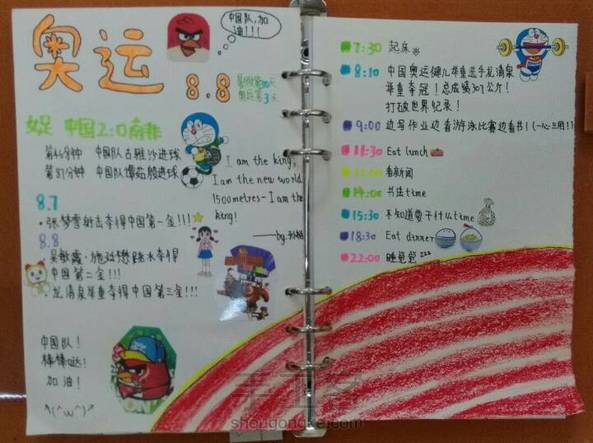 奥运
中国队,加
油!!!
8.8
暑假第30天
奥运第3天
中国2:0南非
第46分钟 中国队古雅沙进球
第87分钟 中国队谭茹殷进球
I am the king,
I am the new world
1500metres-I am the
king!
——by.孙杨
8.7
·张梦雪射击夺得中国第一金!!!
8.8
吴敏霞·施廷懋跳水夺得
中国第二金!!!
·龙清泉举重夺得中国第三金!!!
中国队!
棒棒哒!
加油!
7:30 起床
8:10 中国奥运健儿举重选手龙清泉
举重夺冠!总成绩307公斤!
打破世界纪录!
9:00 边写作业边看游泳比赛边看书!(一心三用!!)
11:30 Eat lunch
看新闻
14:00 书法time
15:30 不知道要干什么time
18:30 Eat dinner
22:00 睡觉觉zzz
shougongke.com